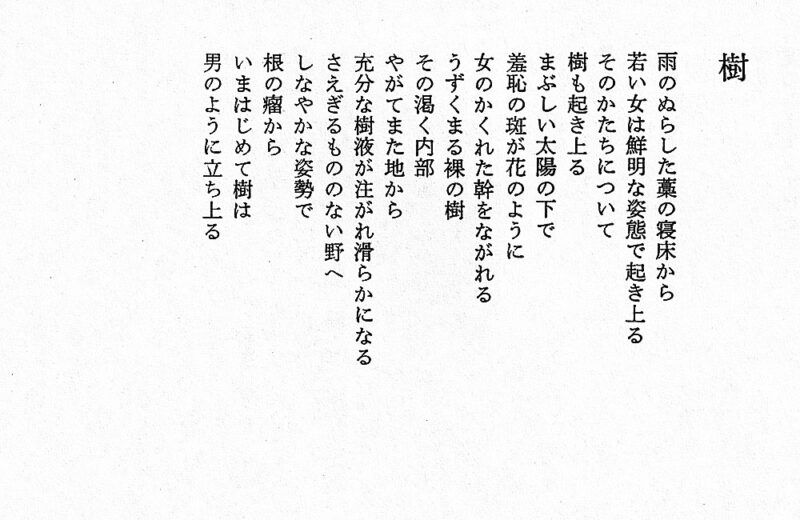 樹
雨のぬらした藁の寝床から
若い女は鮮明な姿態で起き上る
そのかたちについて
樹も起き上る
まぶしい太陽の下で
羞恥の斑が花のように
女のかくれた幹をながれる
うずくまる裸の樹
その渇く内部
やがてまた地から
充分な樹液が注がれ滑らかになる
さえぎるもののない野へ
しなやかな姿勢で
根の瘤から
いまはじめて樹は
男のように立ち上る